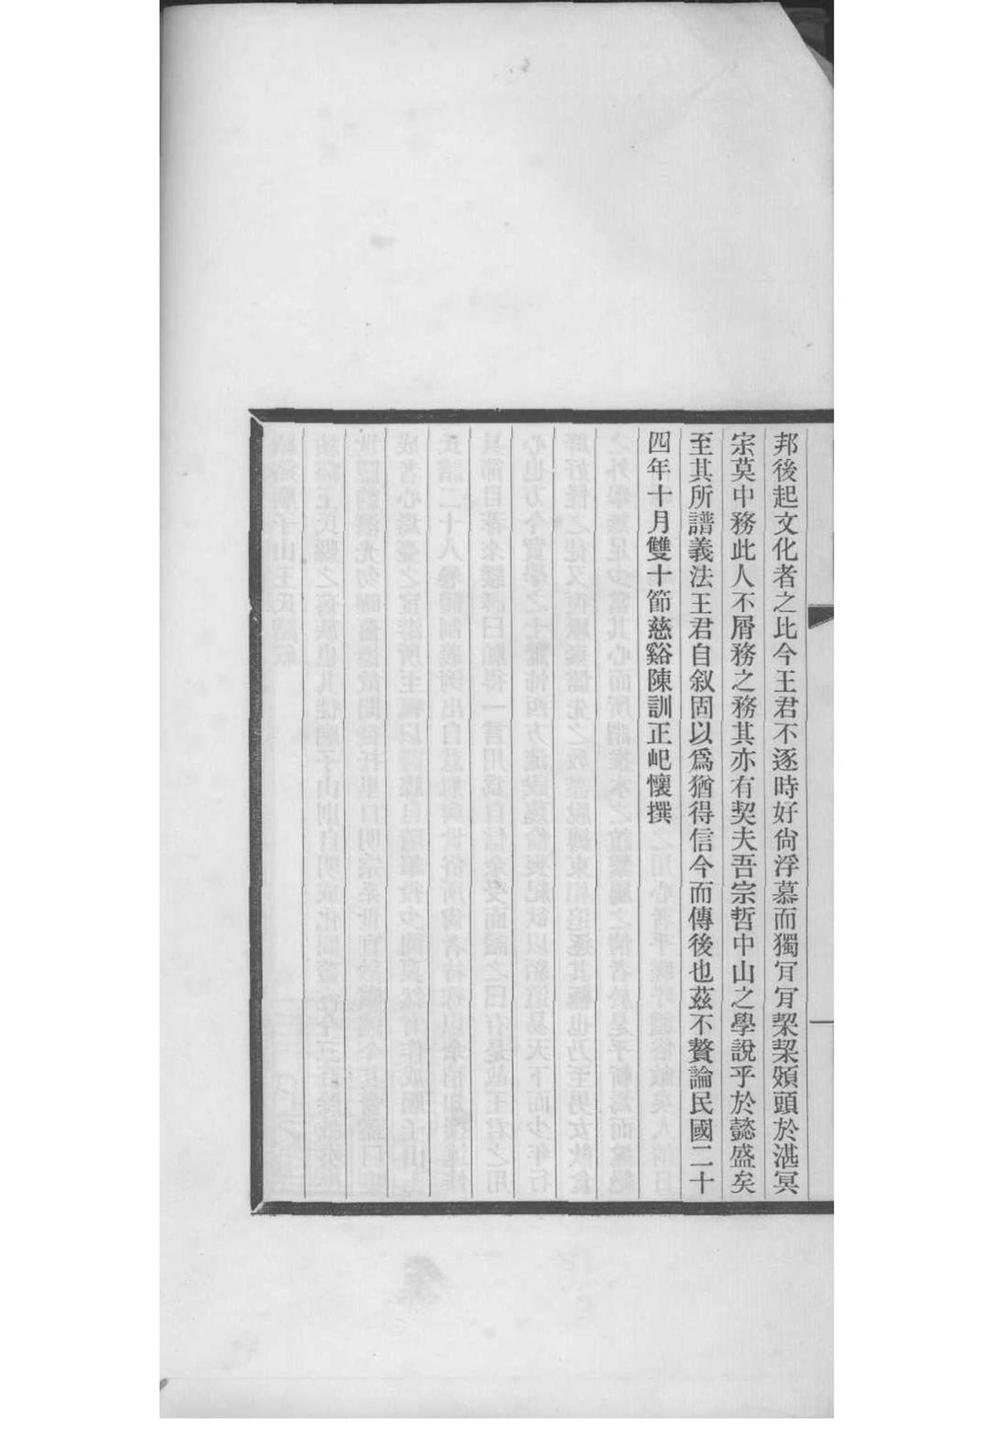 邦後起文化者之比今王君不逐時好尙浮慕而獨肎肎栔栔頞頭於湛冥
宗莫中務此人不屑務之務其亦有契夫吾宗哲中山之學說乎於懿盛矣
至其所譜義法王君自叙固以爲猶得信今而傳後也茲不贅論民國二十
四年十月雙十節慈谿陳訓正屺懷撰